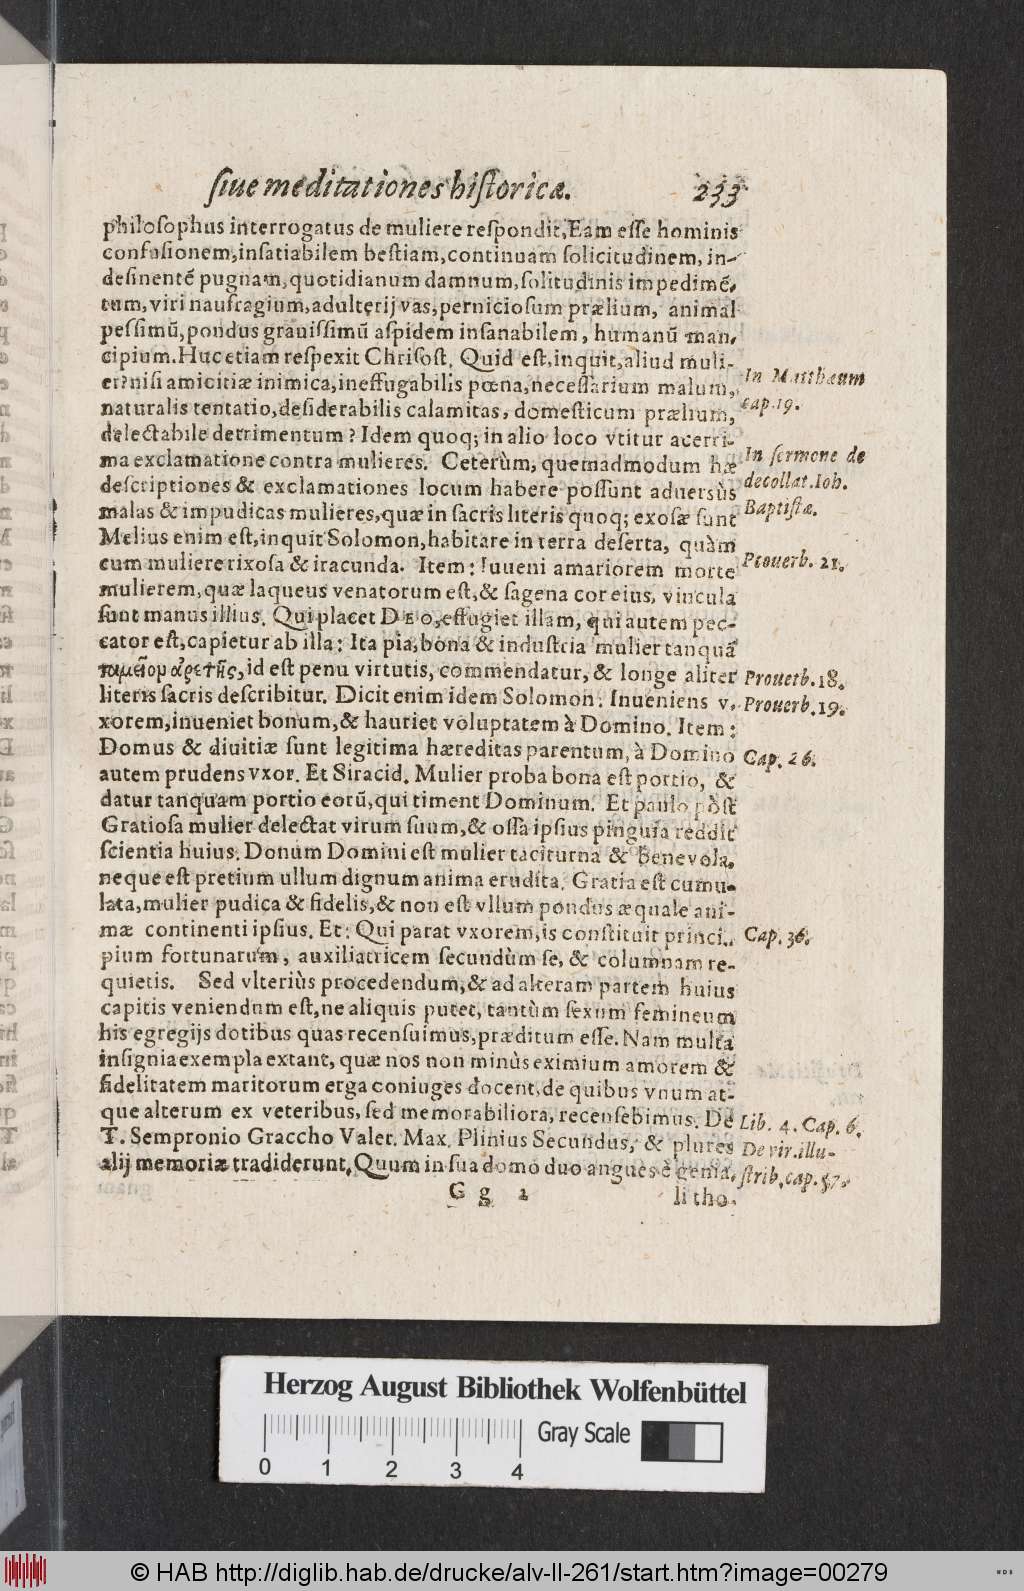 ſiue meditationes hiſtoricæ. 233
philoſophus interrogatus de muliere reſpondit, Eam eſſe hominis
confuſionem, inſatiabilem beſtiam, continuam ſolicitudinem, in-
deſinentẽ pugnam, quotidianum damnum, ſolitudinis impedimẽ-
tum, viri naufragium, adulterij vas, pernicioſum prælium, animal
peſſimũ, pondus grauiſſimũ aſpidem inſanabilem, humanũ man-
cipium. Huc etiam reſpexit Chriſoſt. Quid eſt, inquit, aliud muli-
er? niſi amicitiæ inimica, ineffugabilis pœna, neceſſarium malum,
In Matthæum
naturalis tentatio, deſiderabilis calamitas, domeſticum prælium,
cap. 19.
delectabile detrimentum? Idem quoq; in alio loco vtitur acerri-
ma exclamatione contra mulieres. Ceterùm, quemadmodum hæ
In ſermone de
deſcriptiones & exclamationes locum habere poſſunt aduersùs
decollat. Ioh.
malas & impudicas mulieres, quæ in ſacris literis quoq; exoſæ ſunt
Baptiſtæ.
Melius enim eſt, inquit Solomon, habitare in terra deſerta, quàm
cum muliere rixoſa & iracunda. Item: Iuueni amariorem morte
Prouerb. 21.
mulierem, quæ laqueus venatorum eſt, & ſagena cor eius, vincula
ſunt manus illius. Qui placet DEO, effugiet illam, qui autem pec-
cator eſt, capietur ab illa: Ita pia, bona & induſtria mulier tanquã
ταμεῖον ἀρετῆς, id eſt penu virtutis, commendatur, & longe aliter
Prouerb. 18.
literis ſacris deſcribitur. Dicit enim idem Solomon: Inueniens v-
Prouerb. 19.
xorem, inueniet bonum, & hauriet voluptatem à Domino. Item:
Domus & diuitiæ ſunt legitima hæreditas parentum, à Domino
Cap. 26.
autem prudens vxor. Et Siracid. Mulier proba bona eſt portio, &
datur tanquam portio eorũ, qui timent Dominum. Et paulo pòſt
Gratioſa mulier delectat virum ſuum, & oſſa ipſius pinguia reddit
ſcientia huius. Donum Domini eſt mulier taciturna & benevola,
neque eſt pretium ullum dignum anima erudita. Gratia eſt cumu-
lata, mulier pudica & fidelis, & non eſt vllum pondus æquale ani-
mæ continenti ipſius. Et: Qui parat vxorem, is conſtituit princi-
Cap. 36.
pium fortunarum, auxiliatricem ſecundùm ſe, & columnam re-
quietis. Sed vlteriùs procedendum, & ad alteram partem huius
capitis veniendum eſt, ne aliquis putet, tantùm ſexum femineum
his egregijs dotibus quas recenſuimus, præditum eſſe. Nam multa
inſignia exempla extant, quæ nos non minùs eximium amorem &
fidelitatem maritorum erga coniuges docent, de quibus vnum at-
que alterum ex veteribus, ſed memorabiliora, recenſebimus. De
Lib. 4. Cap. 6.
T. Sempronio Graccho Valer. Max. Plinius Secundus, & plures
De vir. illu-
alij memoriæ tradiderunt, Quum in ſua domo duo angues è genia-
ſtrib. cap. 57.
G g 1 li tho-
Herzog August Bibliothek Wolfenbüttel
Gray Scale
0 1 2 3 4
© HAB http://diglib.hab.de/drucke/alv-ll-261/start.htm?image=00279